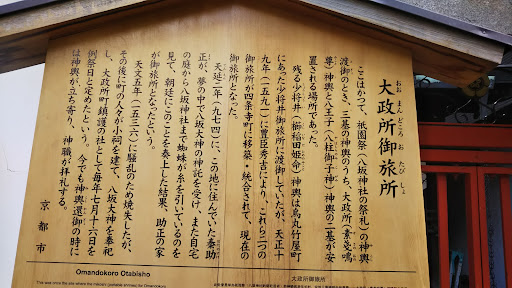 大政所御旅所
おおまんどころおたびしょ
ここはかつて、祇園祭（八坂神社の祭礼）の神輿
渡御のとき、三基の神輿のうち、大政所（素戔嗚
尊）神輿と八王子（八柱御子神）神輿の二基が安
置される場所であった。
残る少将井（櫛稲田姫命）神輿は烏丸竹屋町
にあった少将井御旅所に渡御していたが、天正十
九年（一五九一）に豊臣秀吉により、これら二つの
御旅所が四条寺町に移築・統合されて、現在の
御旅所となった。
天延二年（九七四）に、この地に住んでいた秦助
正が、夢の中で八坂大神の神託を受け、また自宅
の庭から八坂神社まで蜘蛛が糸を引いているのを
見て、朝廷にこのことを奏上した結果、助正の家
が御旅所となったという。
天文五年（一五三六）に騒乱のため焼失したが、
その後に町の人々が小祠を建て、八坂大神を奉祀
し、大政所町鎮護の社として毎年七月十六日を
例祭日と定めたという。今でも神輿還御の時に
は神輿が立ち寄り、神職が拝礼する。
京都市
Omandokoro Otabisho
大政所御旅所